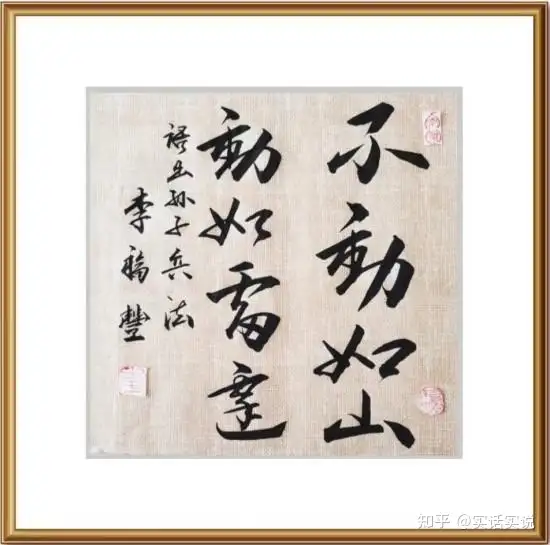 不動如山
動如雷霆
語出孙子兵法
李福豐
知乎 @实话实说